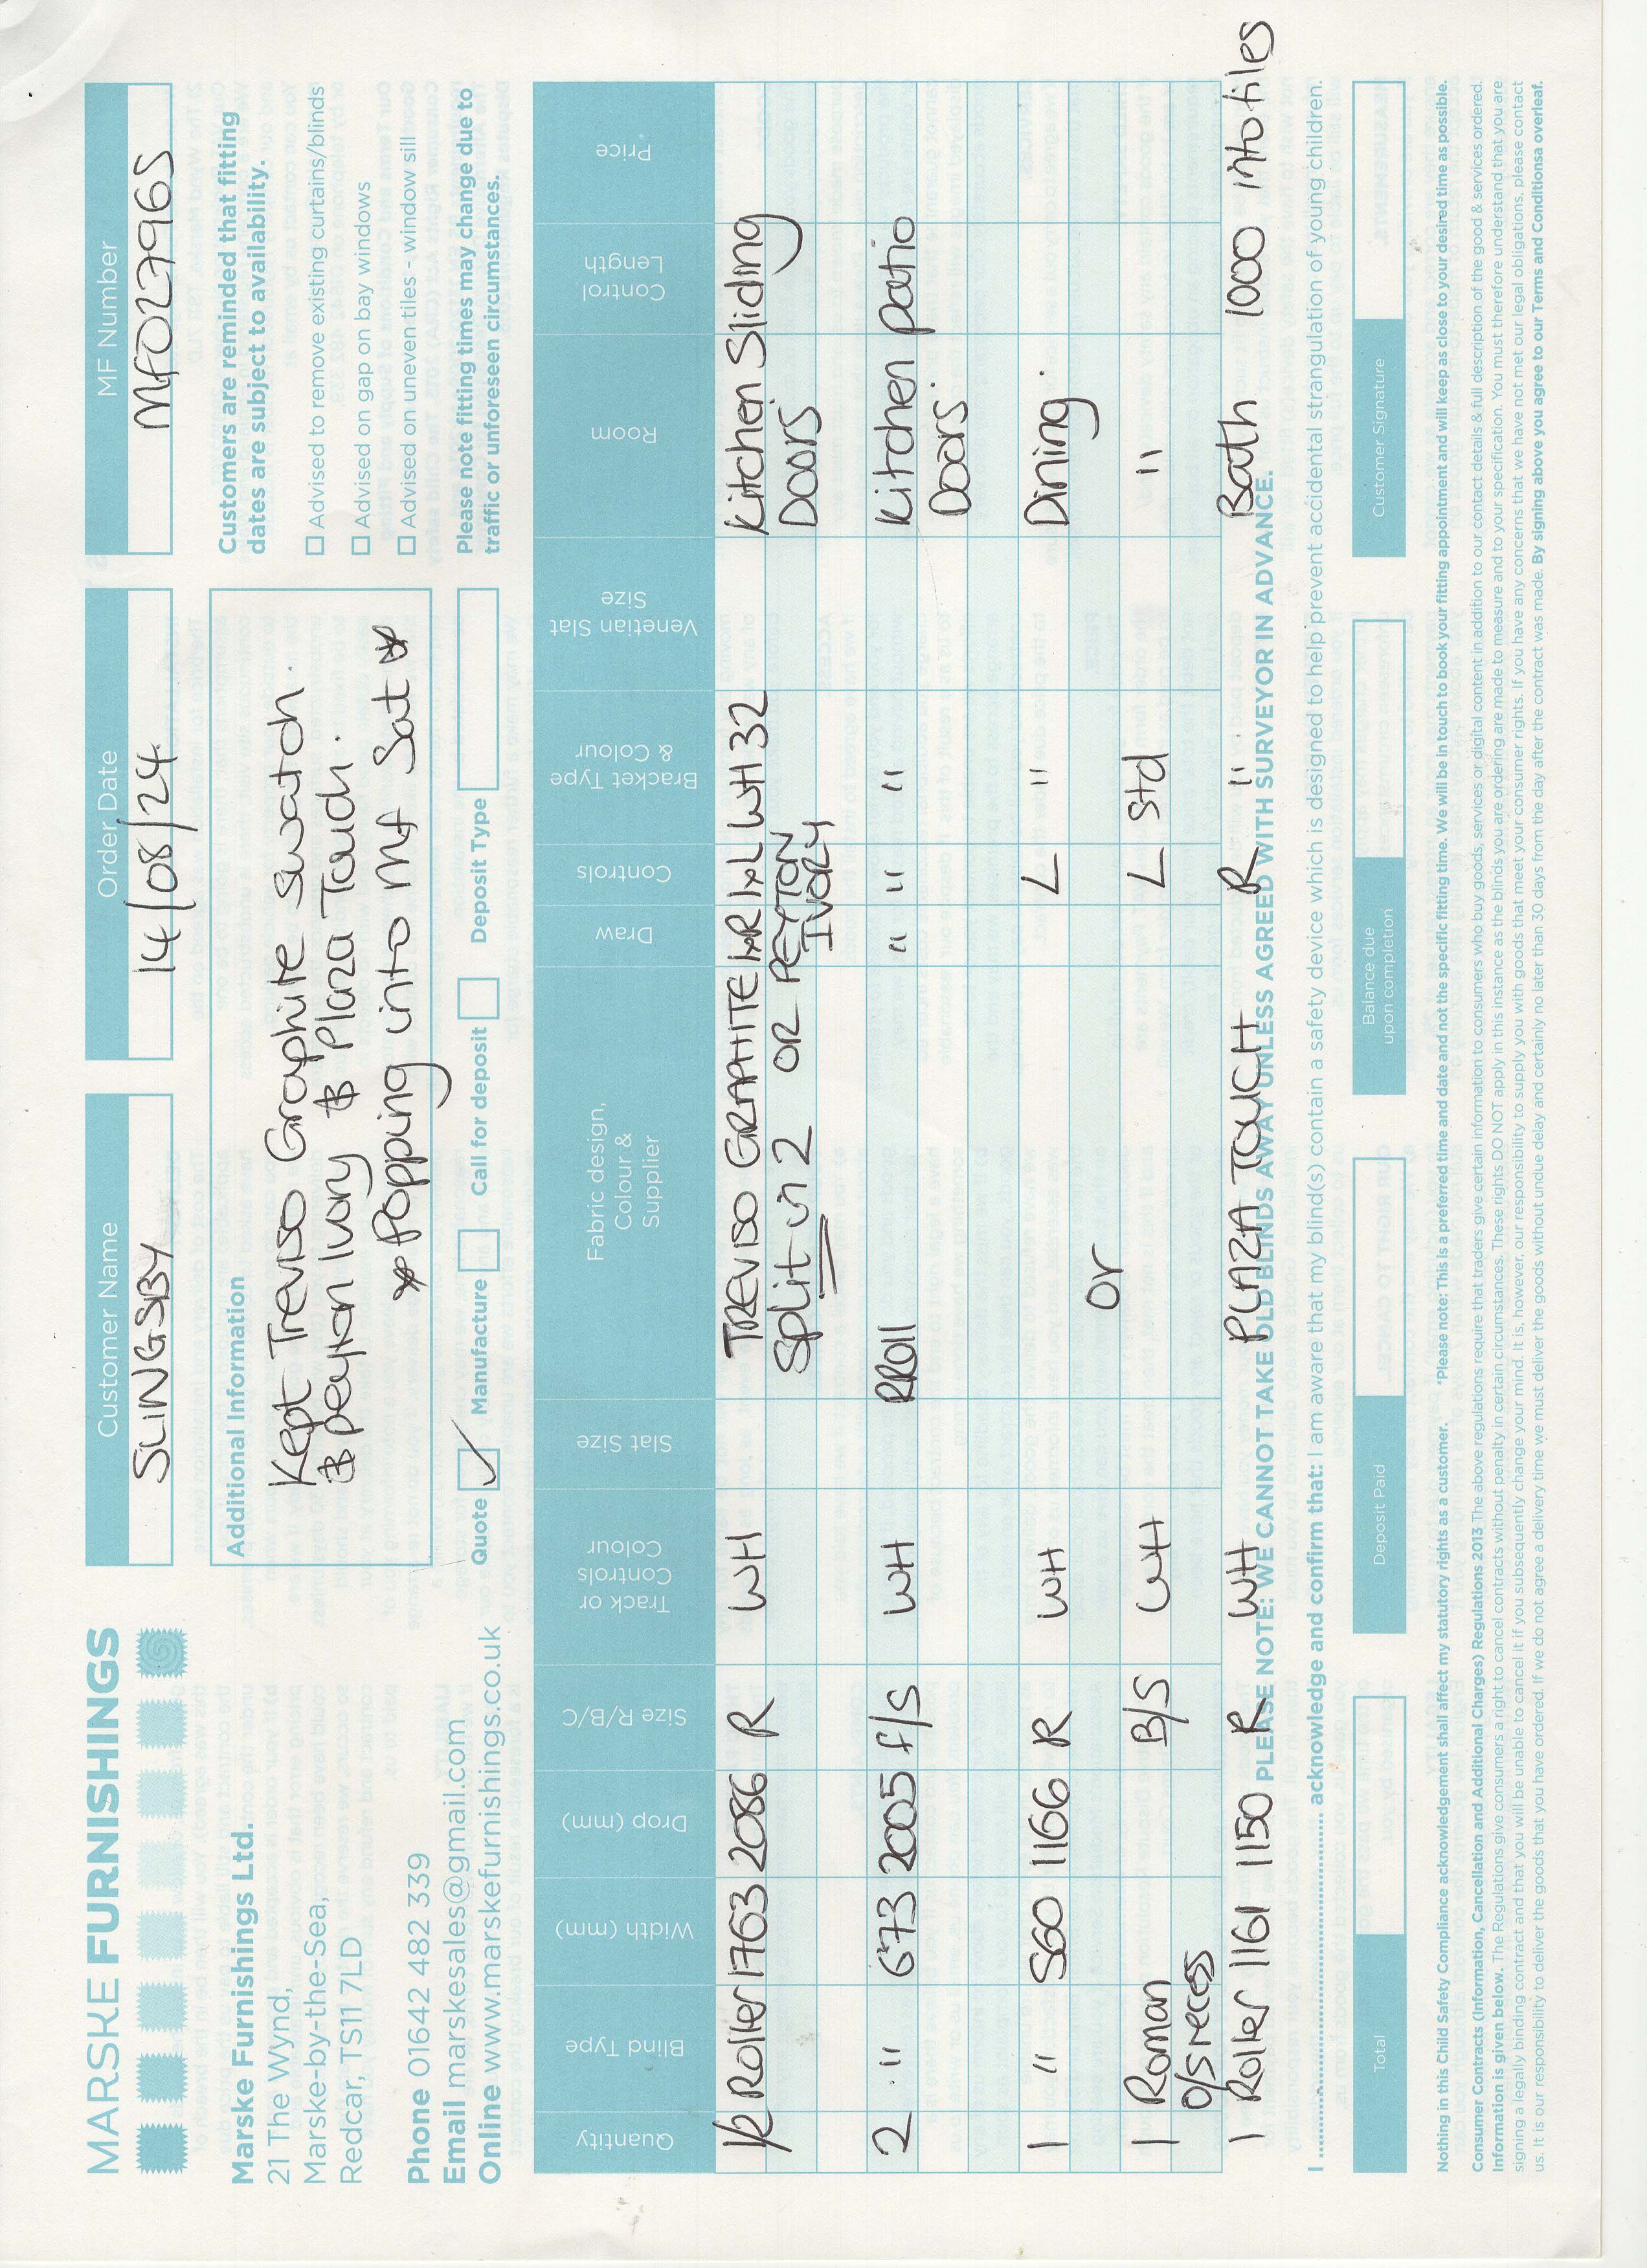 MARSKE FURNISHINGS
Marske Furnishings Ltd.
21 The Wynd,
Marske-by-the-Sea,
Redcar, TS11 7LD
Phone 01642 482 339
Email marskesales@gmail.com
Online www.marskefurnishings.co.uk
Customer Name
SLINGSBY
Order Date
14/08/24
MF Number
Additional Information
Kept Treviso Graphite Swatch.
& peyton Ivory & Plaza Touch.
* Popping into Mf Sat *
Quote ✓ Manufacture Call for deposit Deposit Type
Customers are reminded that fitting
dates are subject to availability.
Advised to remove existing curtains/blinds
Advised on gap on bay windows
Advised on uneven tiles - window sill
Please note fitting times may change due to
traffic or unforeseen circumstances.
Quantity Blind Type Width (mm) Drop (mm) Size R/B/C Track or Controls Colour Slat Size Fabric design, Colour & Supplier Draw Controls Bracket Type & Colour Venetian Slat Size Room Control Length Price
1/2 Roller 1763 2086 R WH TREVISO GRAPHITE 1xR 1xL WH 32 Kitchen Sliding
Split in 2 OR PEYTON IVORY Doors
2 " 673 2005 f/s WH RROll " " " Kitchen patio
Doors.
1 " 560 1166 R WH L " Dining.
or
1 Roman B/S WH L Std "
O/S recess
1 Roller 1161 1150 R WH PLAZA TOUCH R " Bath 1000 into tiles
PLEASE NOTE: WE CANNOT TAKE OLD BLINDS AWAY UNLESS AGREED WITH SURVEYOR IN ADVANCE.
I .......... acknowledge and confirm that: I am aware that my blind(s) contain a safety device which is designed to help prevent accidental strangulation of young children.
Total
Deposit Paid
Balance due
upon completion
Customer Signature
Nothing in this Child Safety Compliance acknowledgement shall affect my statutory rights as a customer. *Please note: This is a preferred time and date and not the specific fitting time. We will be in touch to book your fitting appointment and will keep as close to your desired time as possible.
Consumer Contracts (Information, Cancellation and Additional Charges) Regulations 2013 The above regulations require that traders give certain information to consumers who buy goods, services or digital content in addition to our contact details & full description of the good & services ordered.
Information is given below. The Regulations give consumers a right to cancel contracts without penalty in certain circumstances. These rights DO NOT apply in this instance as the blinds you are ordering are made to measure and to your specification. You must therefore understand that you are
signing a legally binding contract and that you will be unable to cancel it if you subsequently change your mind. It is, however, our responsibility to supply you with goods that meet your consumer rights. If you have any concerns that we have not met our legal obligations, please contact
us. It is our responsibility to deliver the goods without undue delay and certainly no later than 30 days from the day after the contract was made. If we do not agree a delivery time we must deliver the goods that you have ordered. By signing above you agree to our Terms and Conditionsa overleaf.